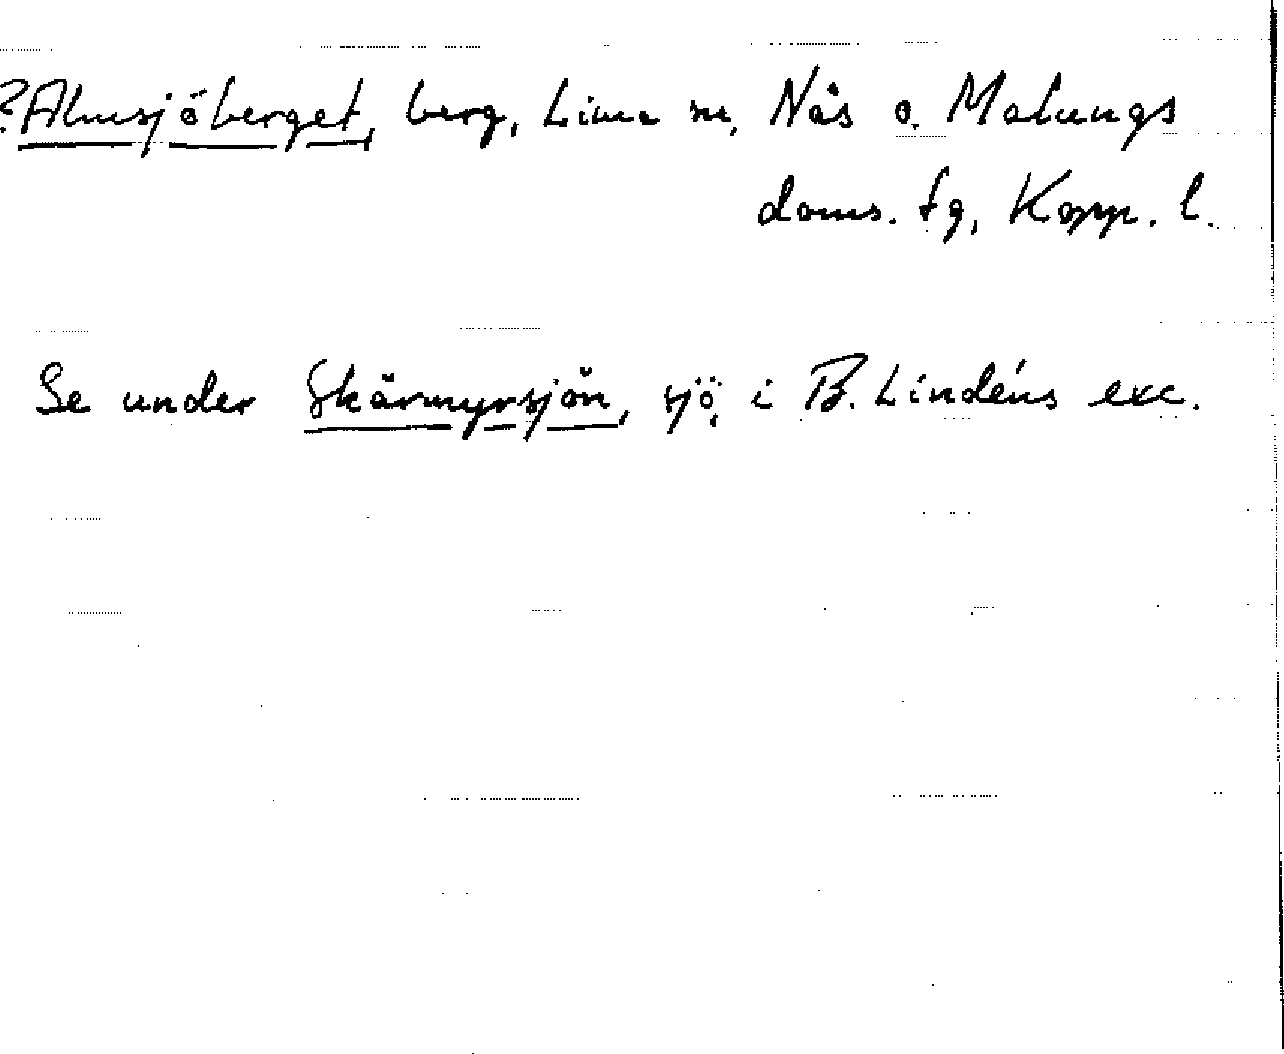 ?Almsjöberget, berg, Lima sn, Nås o. Malungs
doms. tg, Kopp. l.
Se under Skärmyrsjön, sjö, i B. Lindéns exc.